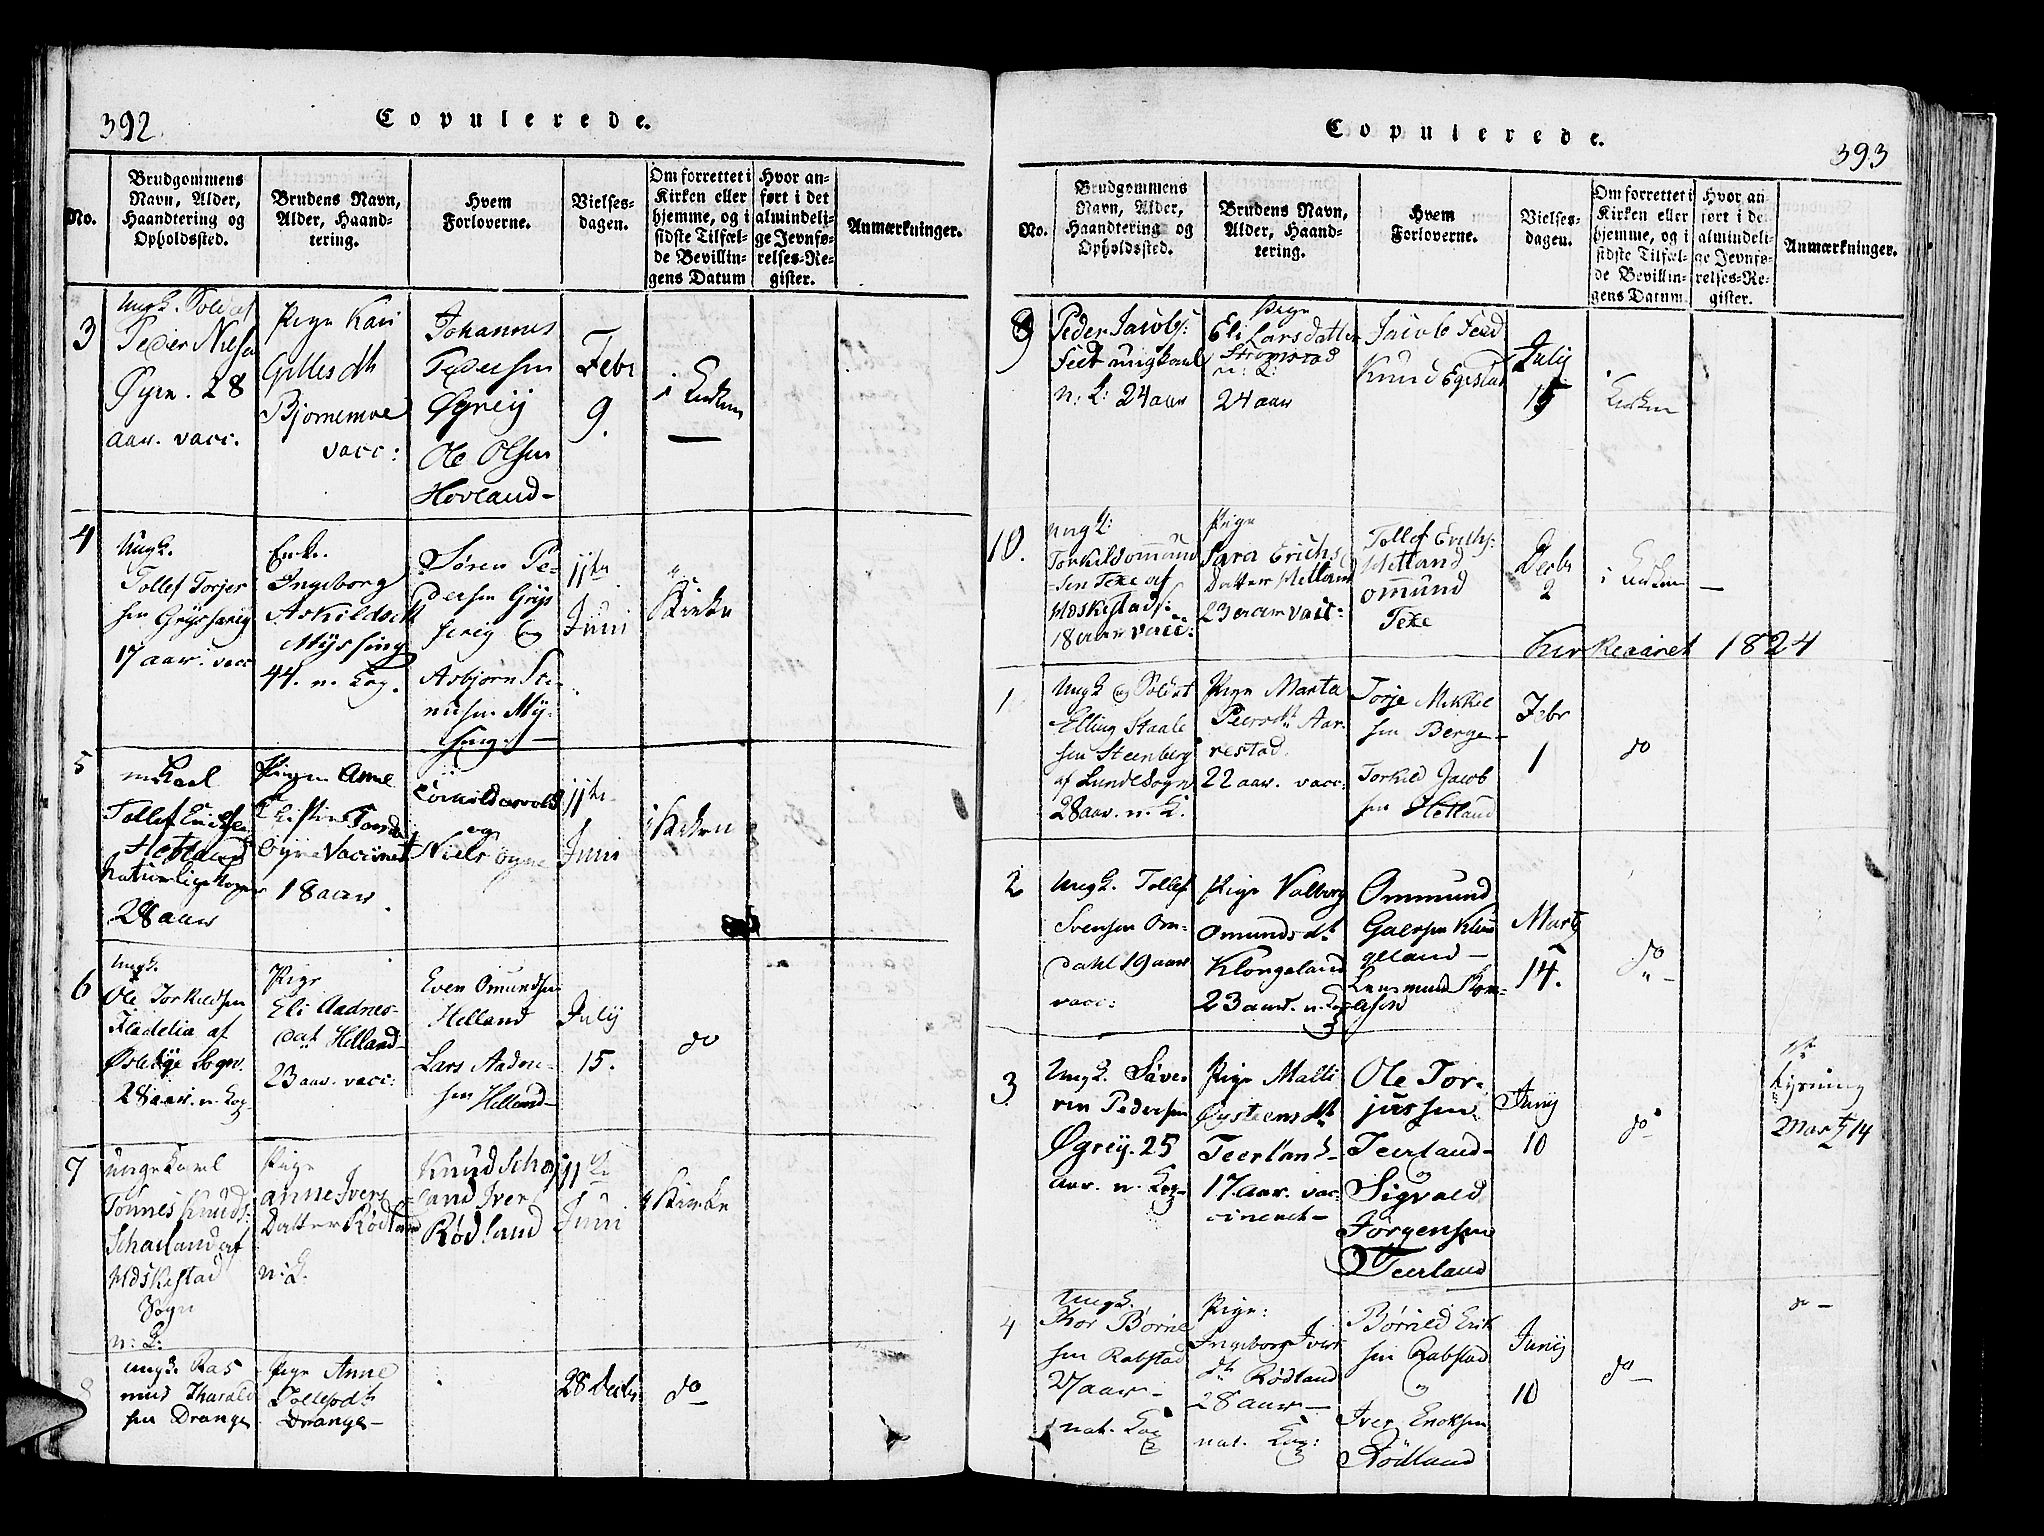 392.
Copulerede.
No.
Brudgommens
Navn, Alder,
Haandtering og
Opholdssted.
Brudens Navn,
Alder, Haand-
tering.
Hvem
Forloverne.
Vielses-
dagen.
Om forrettet i
Kirken eller
hjemme, og i
sidste Tilfæl-
de Bevillin-
gens Datum
Hvor an-
ført i det
almindeli-
ge Jevnfø-
relses-Re-
gister.
Anmærkninger.
3
Ungk. Soldat
Peder Nilsen
Øyrn. 28
aar. vacc.
Pige Kari
Gillesdtr
Bjornemoe
vacc:
Johannes
Pedersen
Øgreij
Ole Olsen
Hovland-
Febr
9.
i Kirken
4
Ungk.
Tollef Torjes
sen
17 aar. vacc
Enke.
Ingeborg
Askildsdtt
Myssing
44. n. Kop.
Søren Pe-
dersen
og
Asbjørn
Mij-
sing.-
11te
Juni
Kirke
5
Tollef Erichsen
Hetland
Naturlige Koper
28 aar
Pigen Anne
Vaccineret
18 aar
og
Niels
11te
Juni
i Kirken
6
Ungk.
Ole Torkildsen
af
Sogn.
28 aar. n. Kop-
Pige
Eli Aadnes-
dat Helland-
23 aar. vacc:
Even Omundsen
Helland
Lars Aadne-
sen Helland-
Julij
15.
do
7
Ungekarl
Tønnes Knuds:
Schaaland af
Hdskestad
Sogn
n: K:
Pige
Anne Ivers
Datter Rødland
n: K.
Knud Scha
land Iver
Rødland
11te
Juni
i Kirke
8
Ungk. Ras
mus Tharald
sen Drange
Pige Anne
Tollefsdtr
Drange-
28 Decbr
do
Copulerede.
393
No.
Brudgommens
Navn, Alder,
Haandtering og
Opholdssted.
Brudens Navn,
Alder, Haand-
tering.
Hvem
Forloverne.
Vielses-
dagen.
Om forrettet i
Kirken eller
hjemme, og i
sidste Tilfæl-
de Bevillin-
gens Datum
Hvor an-
ført i de
almindeli-
ge Jevnfø-
relses-Re-
gister.
Anmærkninger.
9
Peder Jacobs:
Feed ungkarl
n: K: 24 aar
Pige
Eli Larsdatter
Strømstad
n: K:
24 aar
Jacob Feed
Knud Egestad
Julij
15
i Kirken
10.
Ungk:
Torkild Ommund
sen Texe af
Hdskestads:
18 aar vacc:
Pige
Sara Erichs
Datter Hetland
23 aar vacc:
Tollef Erichs:
Hetland
Ommund
Texe
Decbr
2
i Kirken
Kirkeaaret 1824
1
Ungk og Soldat
Elling Staale
sen Steenberg
af Lunde Sogn
28 aar. n. K.
Pige Marta
Peersdtr Aar-
restad.
22 aar. vacc:
Torje Mikkel
sen Berge-
Torkild Jacob
sen Hetland
Febr
1
do
2
Ungk. Tollef
Svensen Om-
dahl 19 aar
vacc:
Pige Valborg
Omundsdtr
Klongeland
23 aar. n. Kop
Ommund
gelland-
Martj
14.
do
3
Ungk. Søve-
rin Pedersen
Øgreij. 25
aar. n. Kop-
Pige Malli
Øysteensdtr
Teerland.
17 aar. vac-
cineret-
Ole Tor-
jussen
Teerland-
Sigvald
Jørgensen
Teerland
Junij
10
do
Lysning
Martj 14
4
Ungk.
Thor Børild
sen Rabstad
27 aar-
nat. Kop
Pige:
Ingeborg Ivers
dtr Rødland
28 aar-
nat. Kop:
Børild Erik
sen Rabstad
Iver Enoksen
Rødland
Junij
10
do
do -